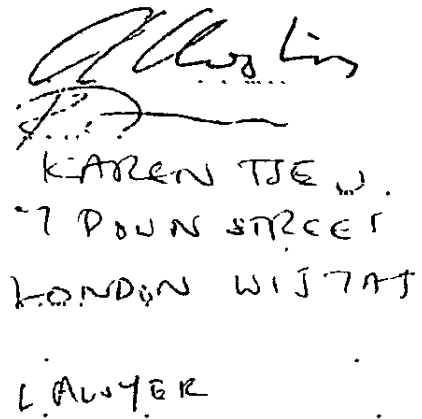 KAREN TSE
7 DOWN STREET
LONDON W1J 7AJ
LAWYER